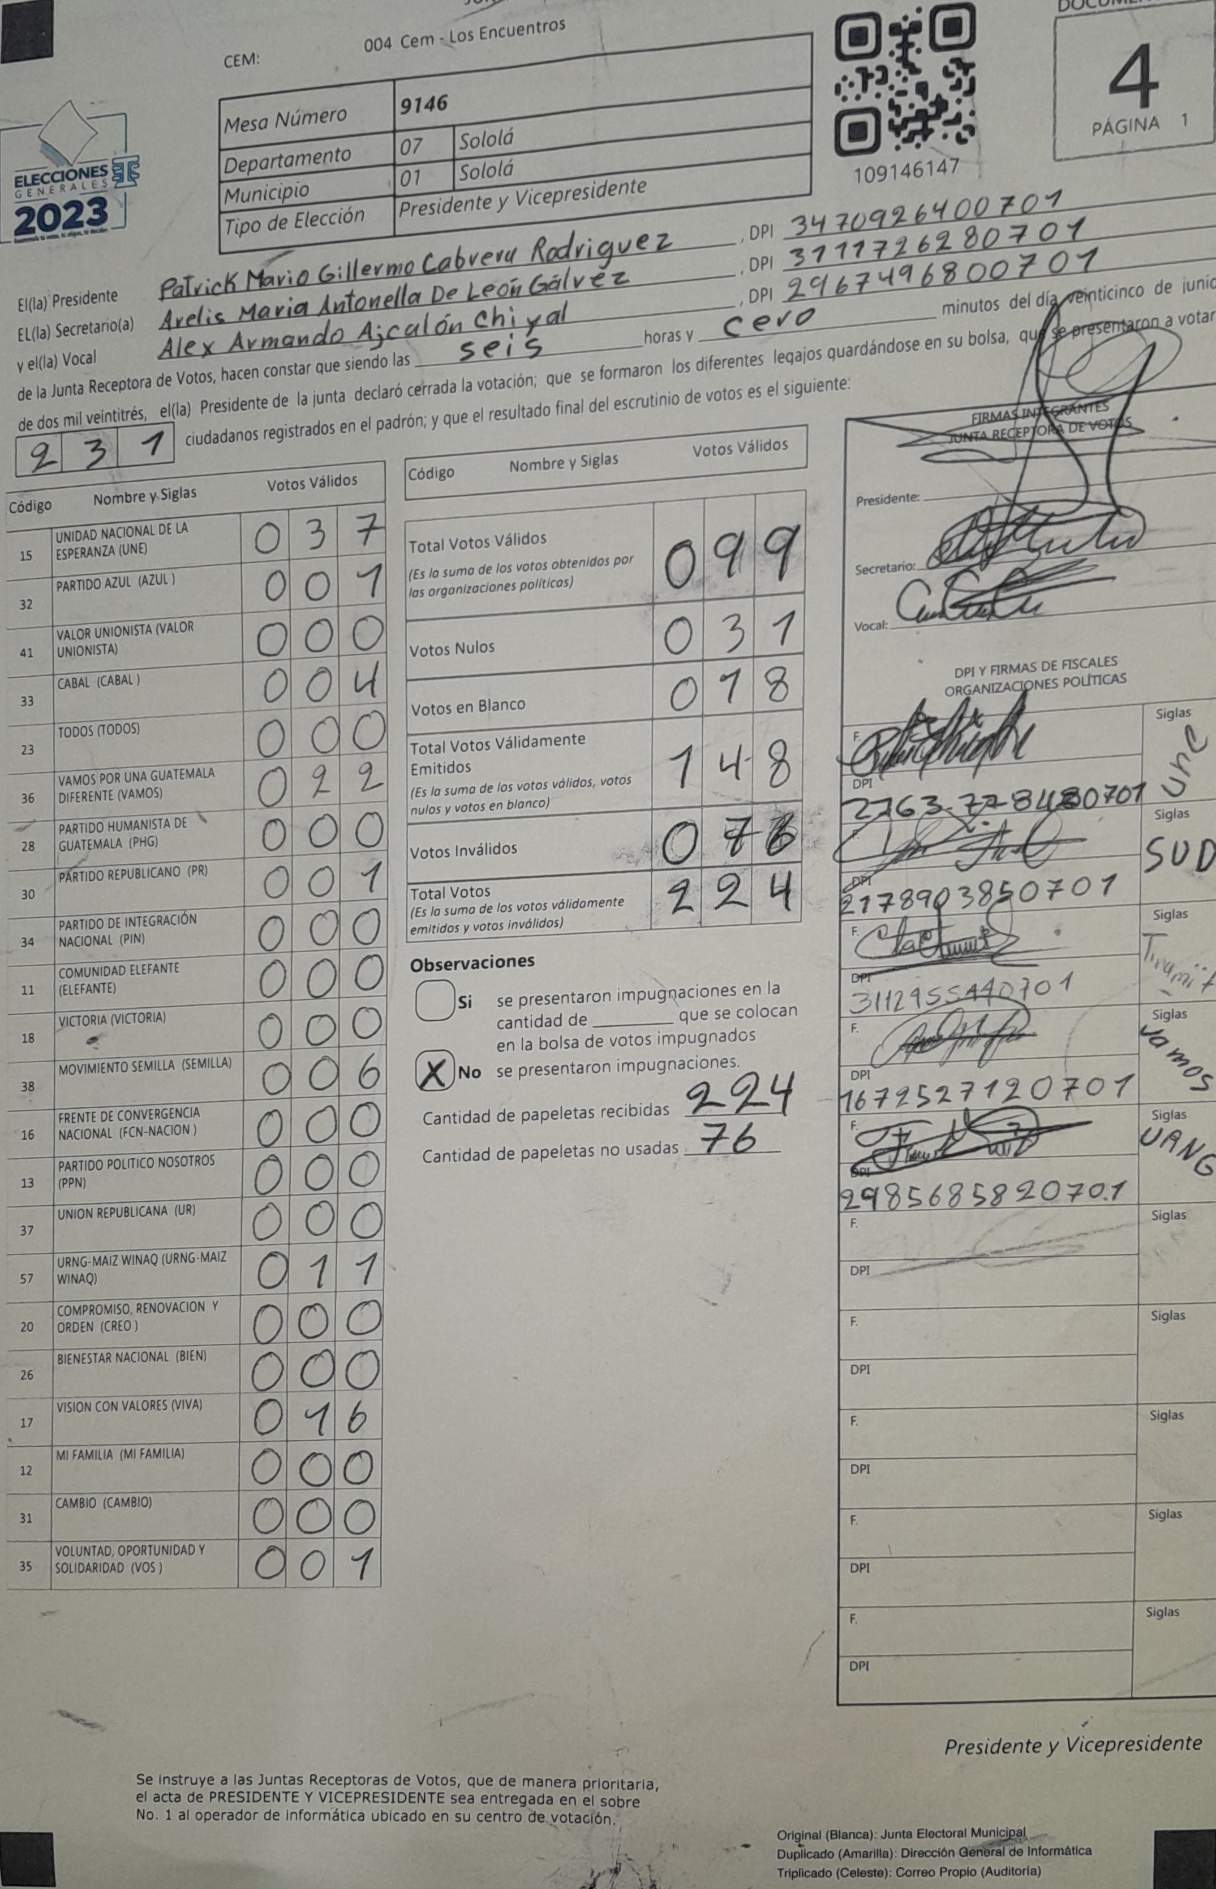 CEM: 004 Cem - Los Encuentros
Mesa Número 9146
Departamento 07 Sololá
Municipio 01 Sololá
Tipo de Elección Presidente y Vicepresidente
ELECCIONES
GENERALES
2023
109146147
4
PÁGINA 1
El(la) Presidente Patrick Mario Gillermo Cabrera Rodriguez , DPI 3470926400701
EL(la) Secretario(a) Arelis Maria Antonella De León Gálvez , DPI 3117726280701
y el(la) Vocal Alex Armando Ajcalón Chiyal , DPI 2967496800701
de la Junta Receptora de Votos, hacen constar que siendo las seis horas y cero minutos del día veinticinco de junio
de dos mil veintitrés, el(la) Presidente de la junta declaró cerrada la votación; que se formaron los diferentes legajos guardándose en su bolsa, que se presentaron a votar
231 ciudadanos registrados en el padrón; y que el resultado final del escrutinio de votos es el siguiente:
Código Nombre y Siglas Votos Válidos
15 UNIDAD NACIONAL DE LA ESPERANZA (UNE) 0 3 7
32 PARTIDO AZUL (AZUL ) 0 0 1
41 VALOR UNIONISTA (VALOR UNIONISTA) 0 0 0
33 CABAL (CABAL ) 0 0 4
23 TODOS (TODOS) 0 0 0
36 VAMOS POR UNA GUATEMALA DIFERENTE (VAMOS) 0 2 2
28 PARTIDO HUMANISTA DE GUATEMALA (PHG) 0 0 0
30 PARTIDO REPUBLICANO (PR) 0 0 1
34 PARTIDO DE INTEGRACIÓN NACIONAL (PIN) 0 0 0
11 COMUNIDAD ELEFANTE (ELEFANTE) 0 0 0
18 VICTORIA (VICTORIA) 0 0 0
38 MOVIMIENTO SEMILLA (SEMILLA) 0 0 6
16 FRENTE DE CONVERGENCIA NACIONAL (FCN-NACION ) 0 0 0
13 PARTIDO POLITICO NOSOTROS (PPN) 0 0 0
37 UNION REPUBLICANA (UR) 0 0 0
57 URNG-MAIZ WINAQ (URNG-MAIZ WINAQ) 0 1 1
20 COMPROMISO, RENOVACION Y ORDEN (CREO ) 0 0 0
26 BIENESTAR NACIONAL (BIEN) 0 0 0
17 VISION CON VALORES (VIVA) 0 1 6
12 MI FAMILIA (MI FAMILIA) 0 0 0
31 CAMBIO (CAMBIO) 0 0 0
35 VOLUNTAD, OPORTUNIDAD Y SOLIDARIDAD (VOS ) 0 0 1
Código Nombre y Siglas Votos Válidos
Total Votos Válidos 0 9 9
(Es la suma de los votos obtenidos por
las organizaciones políticas)
Votos Nulos 0 3 1
Votos en Blanco 0 1 8
Total Votos Válidamente
Emitidos 1 4 8
(Es la suma de los votos válidos, votos
nulos y votos en blanco)
Votos Inválidos 0 7 6
Total Votos 2 2 4
(Es la suma de los votos válidamente
emitidos y votos inválidos)
Observaciones
Si se presentaron impugnaciones en la
cantidad de ________ que se colocan
en la bolsa de votos impugnados
X No se presentaron impugnaciones.
Cantidad de papeletas recibidas 224
Cantidad de papeletas no usadas 76
FIRMAS INTEGRANTES
JUNTA RECEPTORA DE VOTOS
Presidente:
Secretario:
Vocal:
DPI Y FIRMAS DE FISCALES
ORGANIZACIONES POLÍTICAS
F. Siglas
DPI une
Siglas
DPI 2178903850701 SUD
F. Siglas
DPI 3112955440701
F. Siglas
DPI 1672527120701 Vamos
F. Siglas
DPI 2985685820701 URNG
F. Siglas
DPI
F. Siglas
DPI
F. Siglas
DPI
F. Siglas
DPI
F. Siglas
DPI
Presidente y Vicepresidente
Se instruye a las Juntas Receptoras de Votos, que de manera prioritaria,
el acta de PRESIDENTE Y VICEPRESIDENTE sea entregada en el sobre
No. 1 al operador de informática ubicado en su centro de votación.
Original (Blanca): Junta Electoral Municipal
Duplicado (Amarilla): Dirección General de Informática
Triplicado (Celeste): Correo Propio (Auditoría)